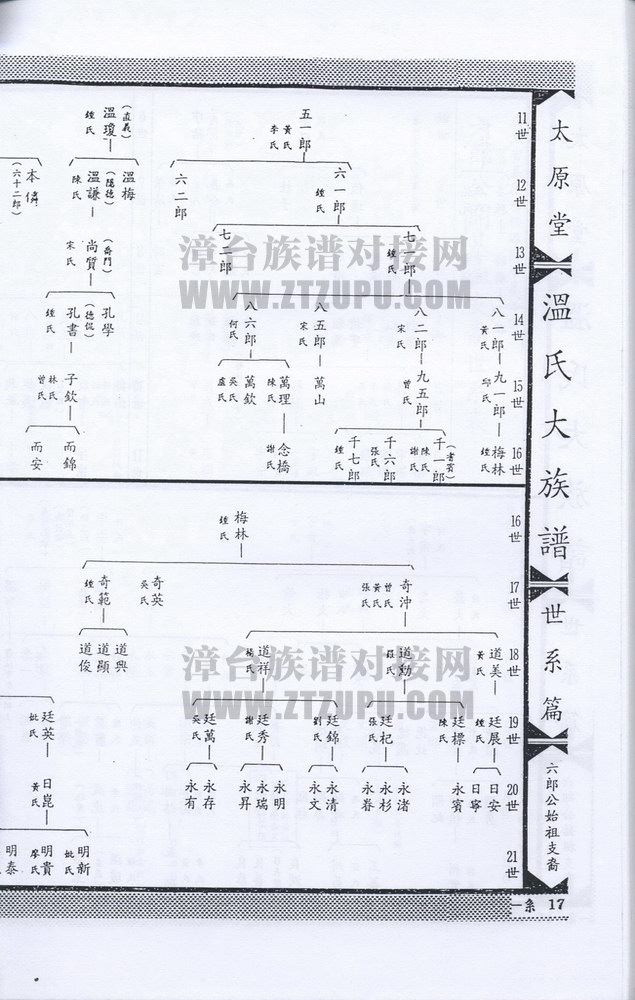 太原堂
溫氏大族譜
世系篇
六郎公始祖支裔
一系 17
11世
五一郎
黃氏
李氏
溫瓊
(直義)
鍾氏
12世
六一郎
鍾氏
六二郎
溫梅
溫謙
(隱德)
陳氏
本傳
(六十二郎)
13世
七一郎
鍾氏
七二郎
尚質
(奇門)
宋氏
14世
八一郎
黃氏
八二郎
宋氏
八五郎
宋氏
八六郎
何氏
孔學
孔書
(德侃)
鍾氏
15世
九一郎
邱氏
九五郎
曾氏
萬山
萬理
陳氏
萬欽
吳氏
盧氏
子欽
林氏
曾氏
16世
梅林
鍾氏
千一郎
陳氏
謝氏
千六郎
張氏
千七郎
鍾氏
念橋
謝氏
而錦
而安
16世
梅林
鍾氏
17世
奇沖
曾氏
黃氏
張氏
奇英
吳氏
奇範
鍾氏
18世
道美
黃氏
道勳
羅氏
道祥
楊氏
道興
道顯
道俊
19世
廷晨
鍾氏
廷標
陳氏
廷杞
張氏
廷錦
劉氏
廷秀
謝氏
廷萬
吳氏
廷英
20世
日安
日寧
永賓
永渚
永杉
永眷
永清
永文
永明
永瑞
永昇
永存
永有
日崑
黃氏
21世
明新
明貴
廖氏
明泰
漳台族谱对接网
WWW.ZTZUPU.COM
漳台族谱对接网
WWW.ZTZUPU.COM